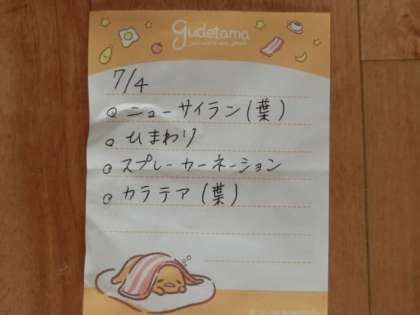 gudetama
7/4
ニューサイラン(葉)
ひまわり
スプレーカーネーション
カラテア(葉)